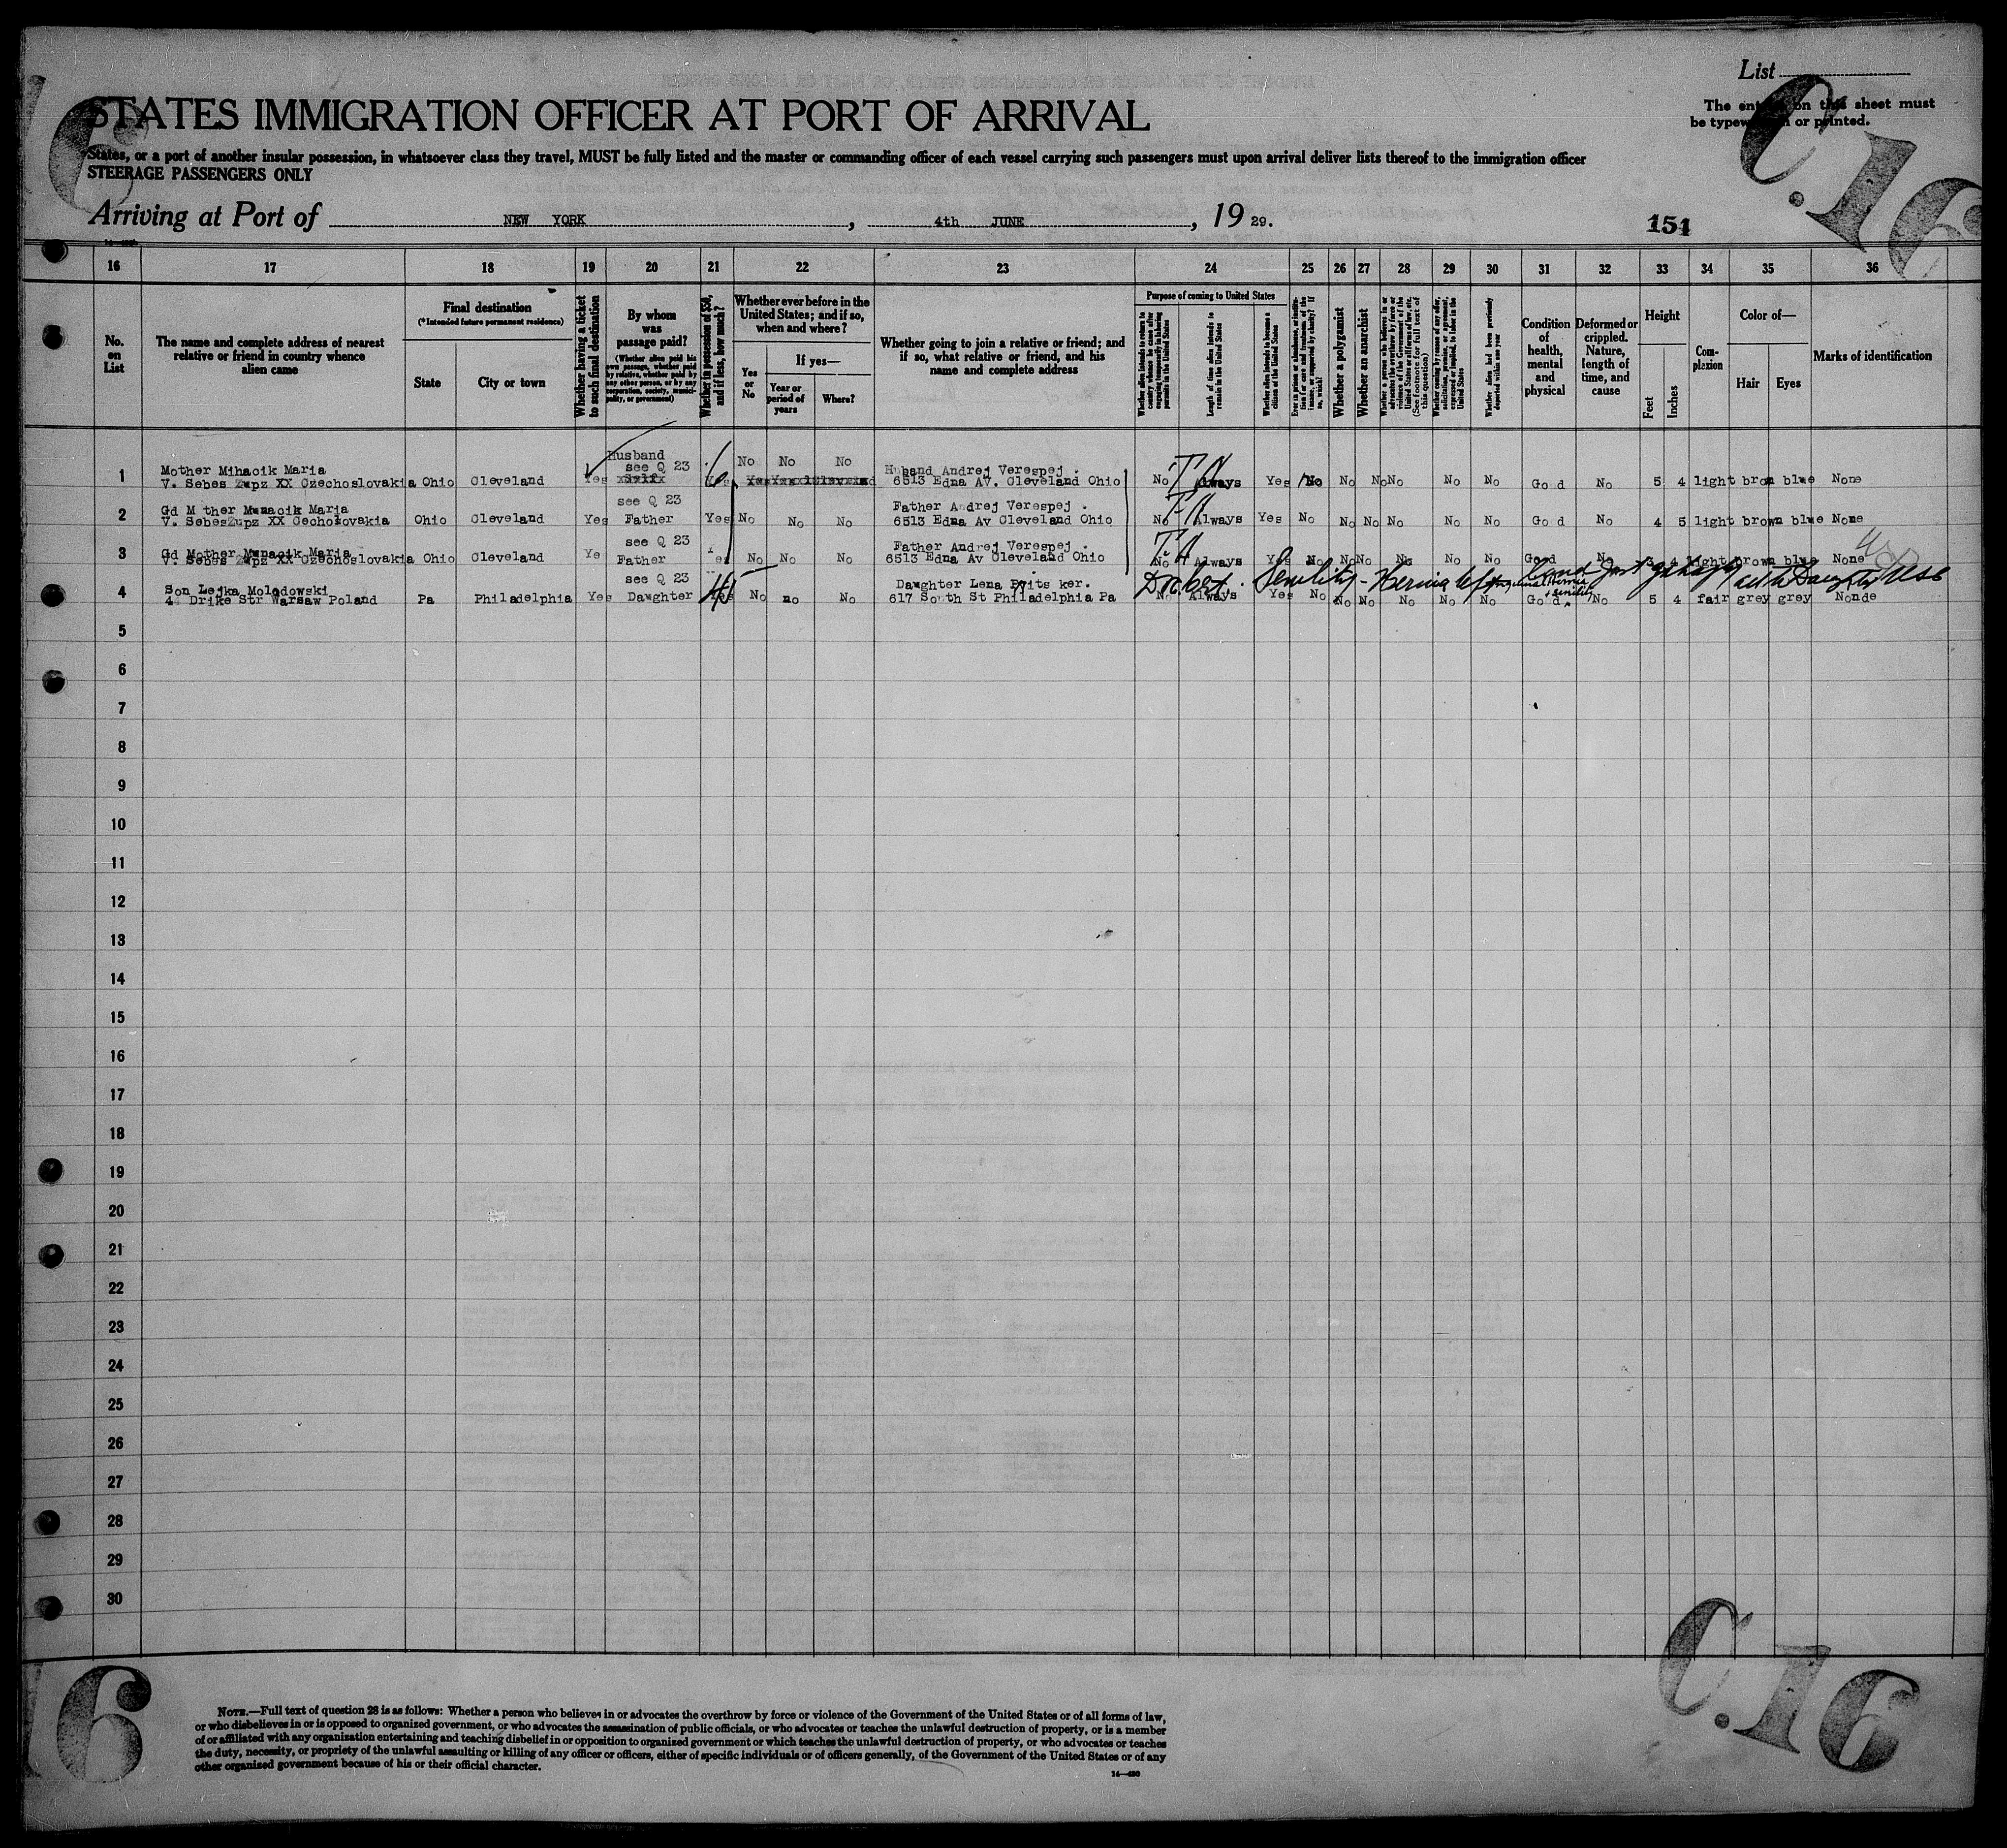 List
The entries on this sheet must
be typewritten or printed.
C.16
6
STATES IMMIGRATION OFFICER AT PORT OF ARRIVAL
States, or a port of another insular possession, in whatsoever class they travel, MUST be fully listed and the master or commanding officer of each vessel carrying such passengers must upon arrival deliver lists thereof to the immigration officer
STEERAGE PASSENGERS ONLY
Arriving at Port of NEW YORK, 4th JUNE, 1929.
151
16 17 18 19 20 21 22 23 24 25 26 27 28 29 30 31 32 33 34 35 36
No. on List
The name and complete address of nearest relative or friend in country whence alien came
Final destination
(*Intended future permanent residence)
State
City or town
Whether having a ticket to such final destination
By whom was passage paid?
(Whether alien paid his own passage, whether paid by relative, whether paid by any other person, or by any corporation, society, municipality, or government)
Whether in possession of $50, and if less, how much?
Whether ever before in the United States; and if so, when and where?
Yes or No
If yes—
Year or period of years
Where?
Whether going to join a relative or friend; and if so, what relative or friend, and his name and complete address
Purpose of coming to United States
Whether alien intends to return to country whence he came after engaging temporarily in laboring pursuits in the United States
Length of time alien intends to remain in the United States
Whether alien intends to become a citizen of the United States
Ever in prison or almshouse, or institution for care and treatment of the insane, or supported by charity? If so, which?
Whether a polygamist
Whether an anarchist
Whether a person who believes in or advocates the overthrow by force or violence of the Government of the United States or all forms of law, etc. (See footnote for full text of this question)
Whether coming by reason of any offer, solicitation, promise, or agreement, expressed or implied, to labor in the United States
Whether alien had been previously deported within one year
Condition of health, mental and physical
Deformed or crippled. Nature, length of time, and cause
Height
Feet
Inches
Complexion
Color of—
Hair
Eyes
Marks of identification
Husband No No No
1 Mother Mihacik Maria see Q 23 Huband Andrej Verespej .
V. Sebes Zupz XX Czechoslovakia Ohio Cleveland Yes 6513 Edna AV. Cleveland Ohio No Always Yes No No No No No No Good No 5 4 light bron blue None
see Q 23 Father Andrej Verespej .
2 Gd M ther Munacik Maria
V. SebesZupz XX Cechoslovakia Ohio Cleveland Yes Father Yes No No No 6513 Edna Av Cleveland Ohio No Always Yes No No No No No No Go d No 4 5 light brown blue None
see Q 23 Father Andrej Verespej .
3 Gd Mother Munacik Maria
V. Sebes Zupz XX Czechoslovakia Ohio Cleveland Ye Father No No No 6513 Edna Av Cleveland Ohio No Always Yes No No No No No No Good No 3 4 light brown blue None
Senility - Hernia left
see Q 23 Daughter Lena ker.
4 Son Lejka Molodowski
4 Drike Str Warsaw Poland Pa Philadelphia Yes Daughter 45 No no No 617 South St Philadelphia Pa No Always Yes No No No No No No Go d No 5 4 fair grey grey Nonde
5
6
7
8
9
10
11
12
13
14
15
16
17
18
19
20
21
22
23
24
25
26
27
28
29
30
C.16
16
NOTE.—Full text of question 28 is as follows: Whether a person who believes in or advocates the overthrow by force or violence of the Government of the United States or of all forms of law,
or who disbelieves in or is opposed to organized government, or who advocates the assassination of public officials, or who advocates or teaches the unlawful destruction of property, or is a member
of or affiliated with any organization entertaining and teaching disbelief in or opposition to organized government or which teaches the unlawful destruction of property, or who advocates or teaches
the duty, necessity, or propriety of the unlawful assaulting or killing of any officer or officers, either of specific individuals or of officers generally, of the Government of the United States or of any
other organized government because of his or their official character.
14—480